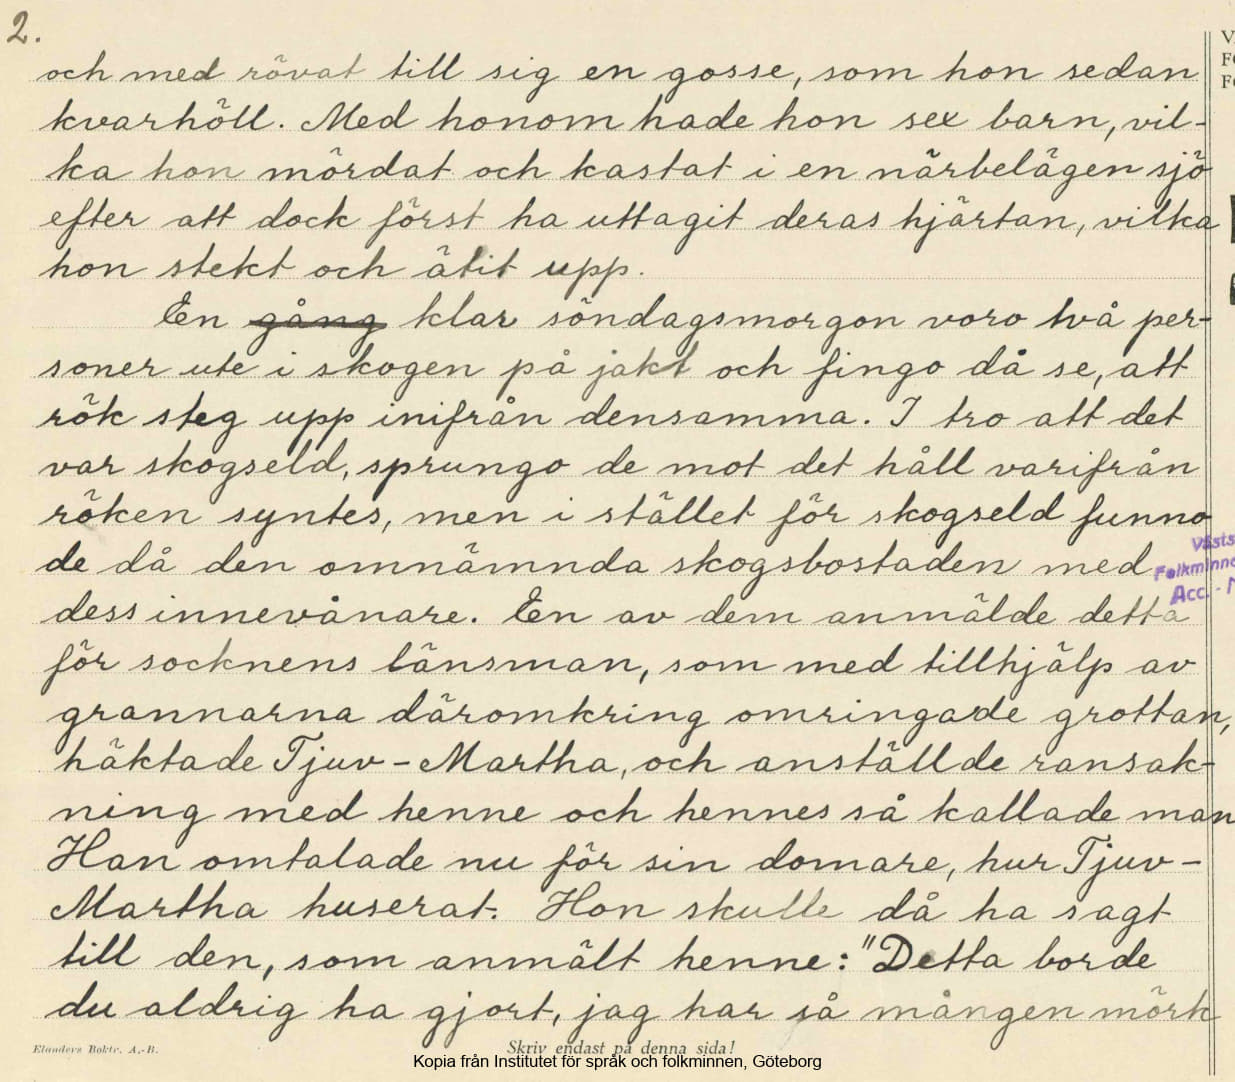 2.
och med rövat till sig en gosse, som hon sedan
kvarhöll. Med honom hade hon sex barn, vil-
ka hon mördat och kastat i en närbelägen sjö
efter att dock först ha uttagit deras hjärtan, vilka
hon stekt och ätit upp.
En gång klar söndagsmorgon voro två per-
soner ute i skogen på jakt och fingo då se, att
rök steg upp inifrån densamma. I tro att det
var skogseld, sprungo de mot det håll varifrån
röken syntes, men i stället för skogseld funno
de då den omnämnda skogsbostaden med
dess innevånare. En av dem anmälde detta
för socknens länsman, som med tillhjälp av
grannarna däromkring omringade grottan,
häktade Tjuv-Martha, och anställde ransak-
ning med henne och hennes så kallade man
Han omtalade nu för sin domare, hur Tjuv-
Martha huserat. Hon skulle då ha sagt
till den, som anmält henne: "Detta borde
du aldrig ha gjort, jag har så mången mörk
Elanders Boktr. A.-B.
Skriv endast på denna sida!
Kopia från Institutet för språk och folkminnen, Göteborg
Acc.